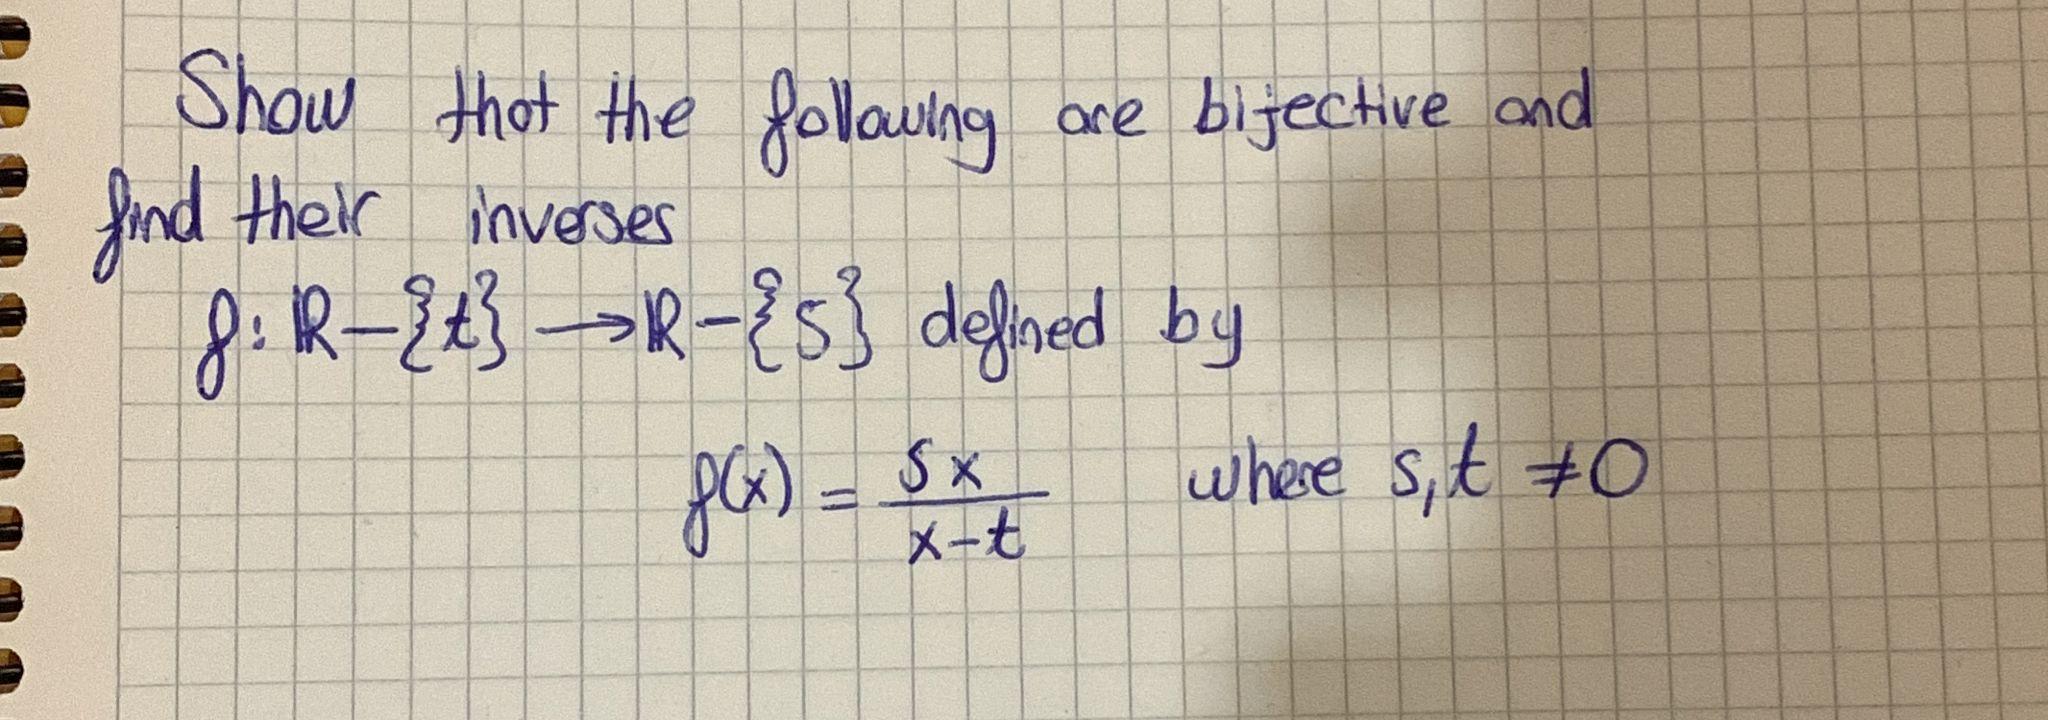 Show that the following are bijective and
find their inverses
f: ℝ-{t} → ℝ-{s} defined by
f(x) = sx / x-t where s,t ≠ 0